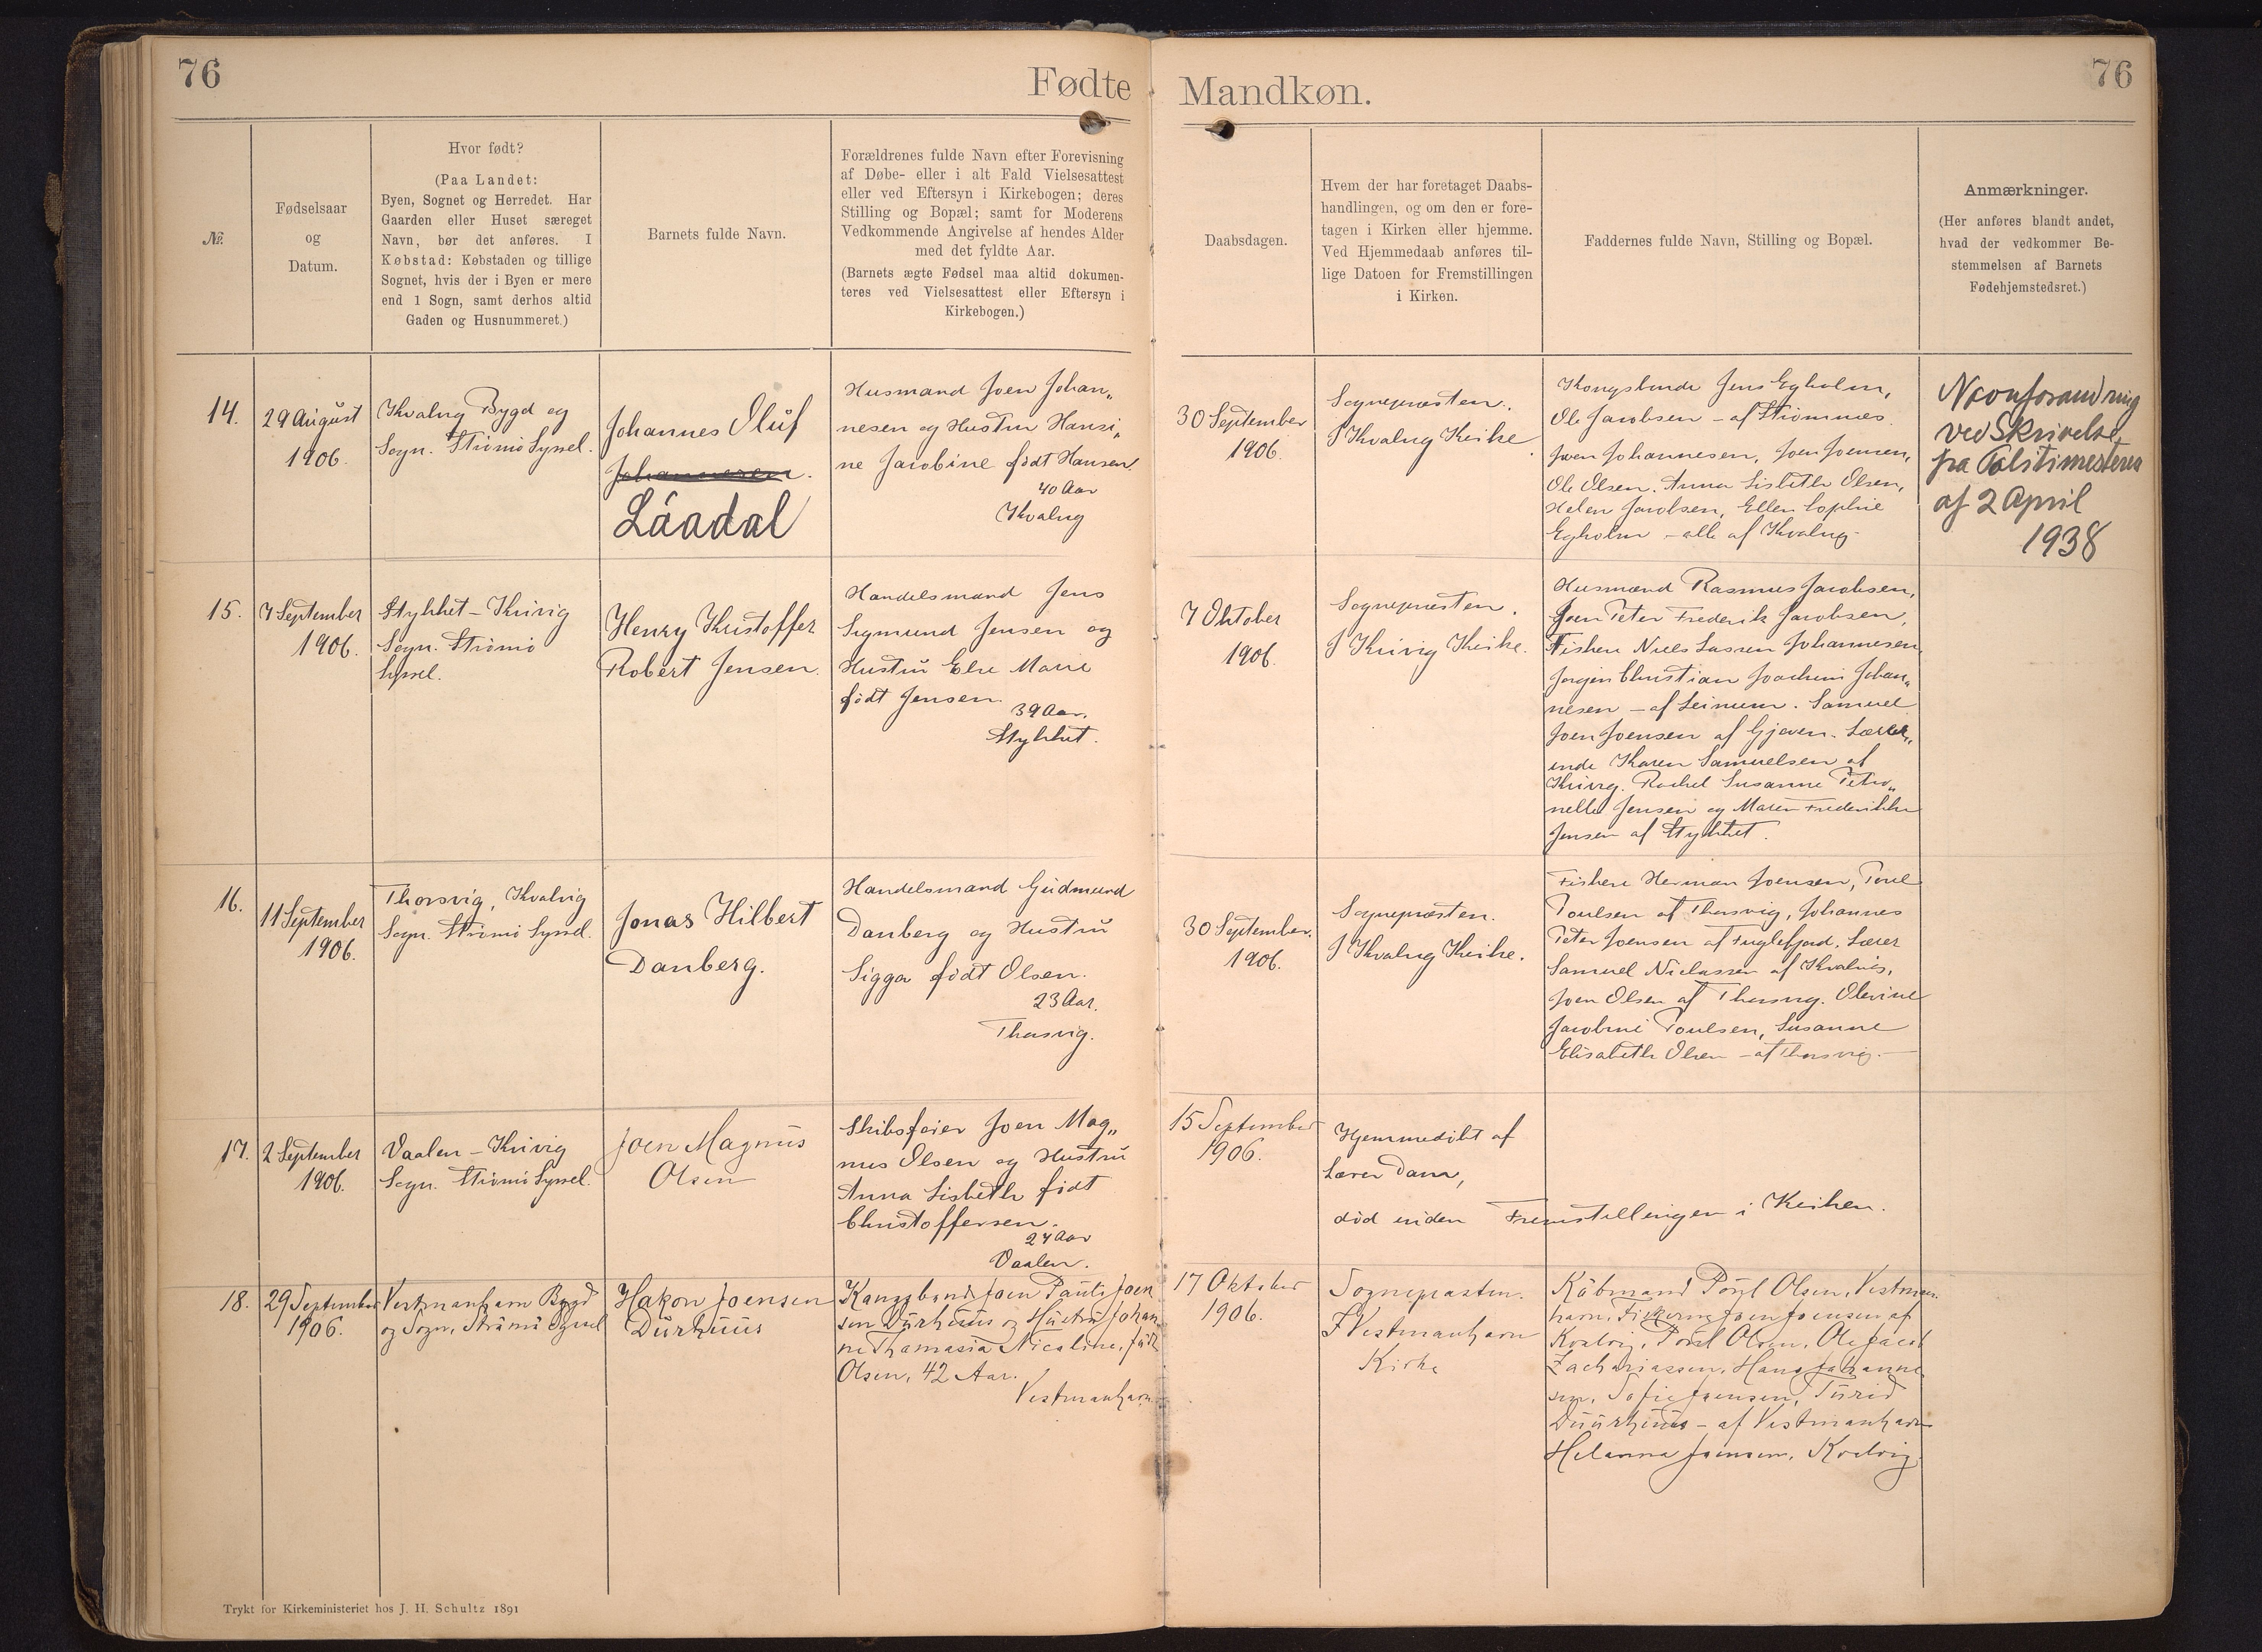 76
Fødte
Mandkøn.
76
№.
Fødselsaar
og
Datum.
Hvor født?
(Paa Landet:
Byen, Sognet og Herredet. Har
Gaarden eller Huset særeget
Navn, bør det anføres. I
Købstad: Købstaden og tillige
Sognet, hvis der i Byen er mere
end 1 Sogn, samt derhos altid
Gaden og Husnummeret.)
Barnets fulde Navn.
Forældrenes fulde Navn efter Forevisning
af Døbe- eller i alt Fald Vielsesattest
eller ved Eftersyn i Kirkebogen; deres
Stilling og Bopæl; samt for Moderens
Vedkommende Angivelse af hendes Alder
med det fyldte Aar.
(Barnets ægte Fødsel maa altid dokumen-
teres ved Vielsesattest eller Eftersyn i
Kirkebogen.)
Daabsdagen.
Hvem der har foretaget Daabs-
handlingen, og om den er fore-
tagen i Kirken eller hjemme.
Ved Hjemmedaab anføres til-
lige Datoen for Fremstillingen
i Kirken.
Faddernes fulde Navn, Stilling og Bopæl.
Anmærkninger.
(Her anføres blandt andet,
hvad der vedkommer Be-
stemmelsen af Barnets
Fødehjemstedsret.)
14.
29 August
1906.
Kvalvig Bygd og
Sogn. Strömö Syssel.
Johannes Oluf
Johannesen.
Láadal
Husmand Joen Johan„
nesen og Hustru Hansi„
ne Jacobine födt Hansen.
40 Aar
Kvalvig
30 September
1906.
Sognepræsten.
I Kvalvig Kirke.
Kongsbonde Jens Egholm,
Ole Jacobsen – af Strömnæs.
Joen Johannesen, Joen Joensen,
Ole Olsen. Anna Lisbeth Olsen,
Helen Jacobsen, Ellen Sophie
Egholm – alle af Kvalvig.
Navnforandring
ved Skrivelse
fra Politimesteren
af 2 April
1938
15.
7 September
1906.
Stykket – Kvivig
Sogn. Strömö
Syssel.
Henry Kristoffer
Robert Jensen.
Handelsmand Jens
Sigmund Jensen og
Hustru Else Marie
födt Jensen.
39 Aar.
Stykket.
7 Oktober
1906.
Sognepræsten.
I Kvivig Kirke.
Husmænd Rasmus Jacobsen,
Joen Peter Frederik Jacobsen,
Fisker Niels Sussen Johannesen,
Jørgen Christian Joachim Johan„
nesen – af Leinum. Samuel
Joen Joensen af Gjoven. Lærer„
inde Karen Samuelsen af
Kvivig. Rachel Susanne Petro„
nelle Jensen og Maren Frederikke
Jensen af Stykket.
16.
11 September
1906.
Thorsvig, Kvalvig
Sogn. Strömö Syssel.
Jonas Hilbert
Danberg.
Handelsmand Gudmund
Danberg og Hustru
Sigga födt Olsen.
23 Aar.
Thorsvig.
30 September.
1906.
Sognepræsten.
I Kvalvig Kirke.
Fiskere Herman Joensen, Poul
Poulsen af Thorsvig, Johannes
Peter Joensen af Fuglefjord. Lærer
Samuel Niclassen af Kvalvig,
Joen Olsen af Thorsvig. Olevine
Jacobine Poulsen, Susanne
Elisabeth Olsen – af Thorsvig. –
17.
2 September
1906.
Vaalen – Kvivig
Sogn. Strömö Syssel.
Joen Magnus
Olsen
Skibsfører Joen Mag„
nus Olsen og Hustru
Anna Lisbeth födt
Christoffersen.
24 Aar
Vaalen.
15 September
1906.
Hjemmedöbt af
Lærer Dam,
död inden Fremstillingen i Kirken.
18.
29 September
1906.
Vestmanhavn Bygd
og Sogn, Strömö Syssel
Hakon Joensen
Durhuus
Kongsbonde Joen Pauli Joen
sen Durhuus og Hustru Johan
ne Thomasia Nicoline, född
Olsen, 42 Aar.
Vestmanhavn.
17 Oktober
1906.
Sognepræsten.
I Vestmanhavn
Kirke
Köbmand Poul Olsen, Vestman-
havn, Fiskerne Joen Joensen af
Kvalvig, Poul Olsen, Ole Jacob
Zachariassen, Hans Johanne
sen, Sofie Joensen, Turid
Duurhuus – af Vestmanhavn
Helanna Joensen, Kvalvig.
Trykt for Kirkeministeriet hos J. H. Schultz 1891